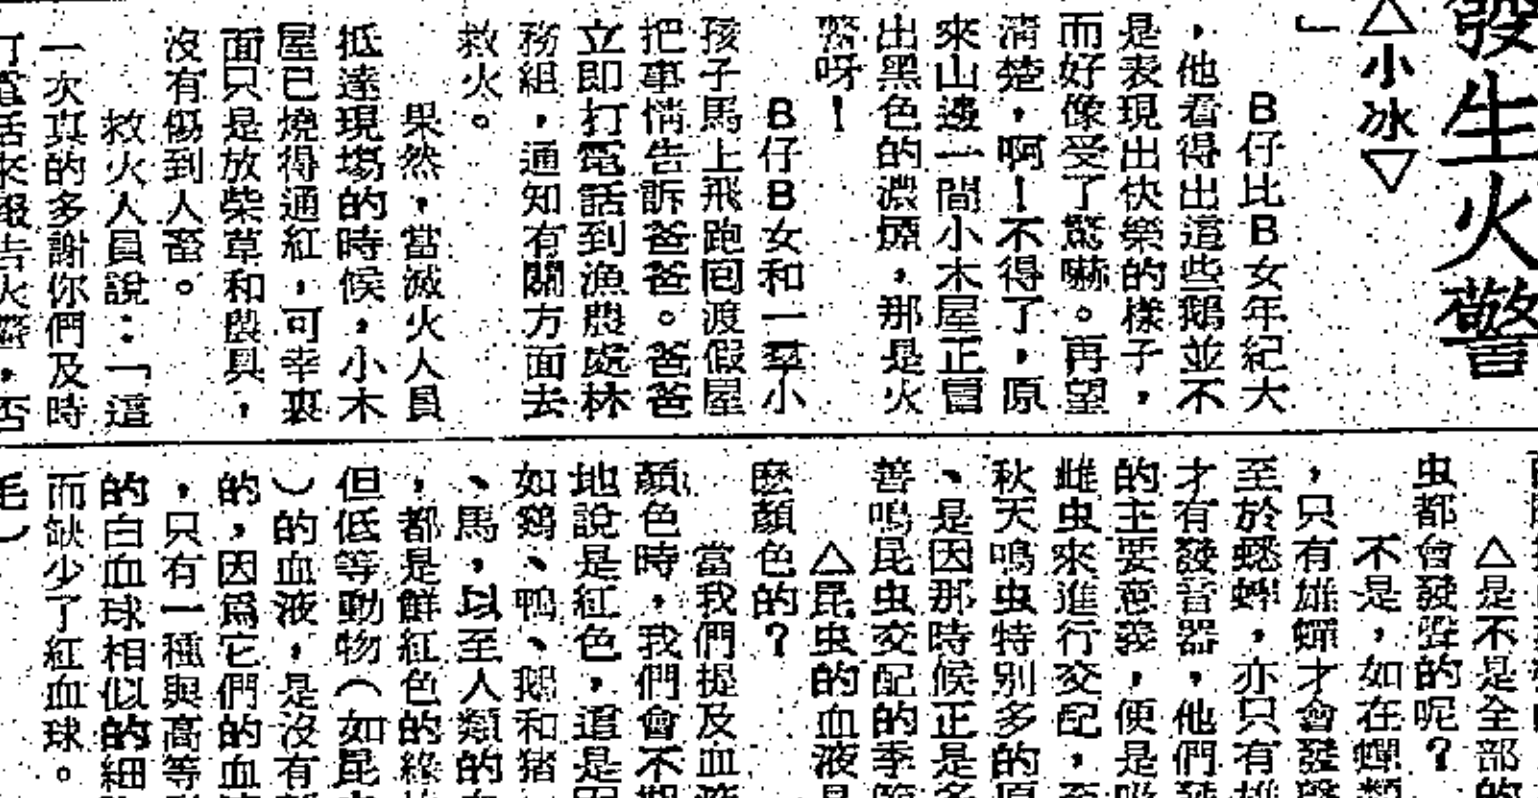 發生火警
△小冰▽
」
B仔比B女年紀大
，他看得出這些鵝並不
是表現出快樂的樣子，
而好像受了驚嚇。再望
清楚，啊！不得了，原
來山邊一間小木屋正冒
出黑色的濃煙，那是火
警呀！
B仔B女和一羣小
孩子馬上飛跑囘渡假屋
把事情告訴爸爸。爸爸
立即打電話到漁農處林
務組，通知有關方面去
救火。
果然，當滅火人員
抵達現塲的時候，小木
屋已燒得通紅，可幸裏
面只是放柴草和農具，
沒有傷到人畜。
救火人員說：「這
一次真的多謝你們及時
打電話來報告火警，否
△是不是全部的
虫都會發聲的呢？
不是，如在蟬類
，只有雄蟬才會發聲
至於蟋蟀，亦只有雄
才有發音器，他們發
的主要意義，便是吸
雌虫來進行交配，至
秋天鳴虫特别多的原
、是因那時候正是多
善鳴昆虫交配的季節
△昆虫的血液是
麽顏色的？
當我們提及血液
顏色時，我們會不期
地說是紅色，這是因
如鷄、鴨、鵝和猪
、馬，以至人類的血
，都是鮮紅色的緣故
但低等動物（如昆虫
）的血液，是沒有
的，因爲它們的血液
，只有一種與高等
的白血球相似的細
而缺少了紅血球。
毛）